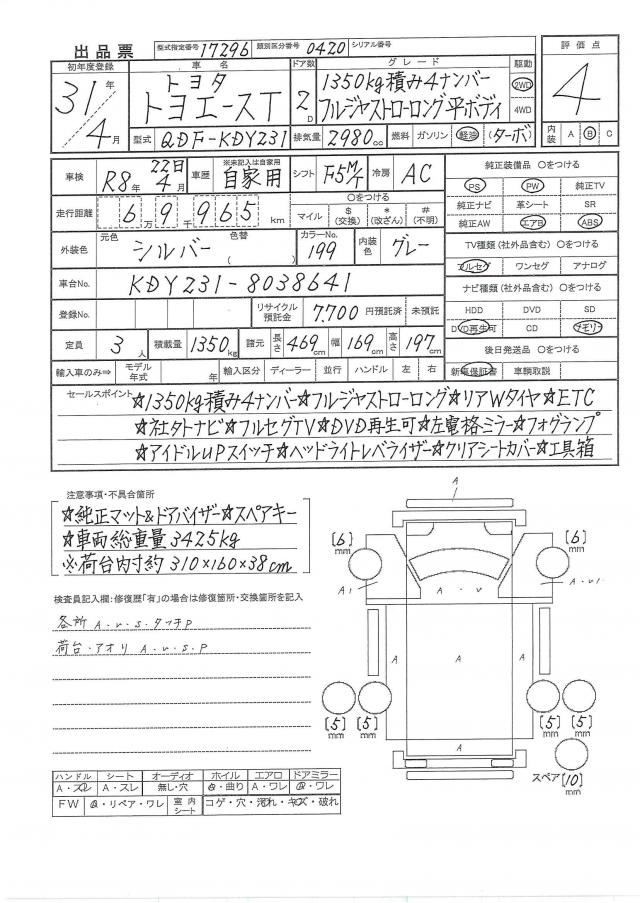 出品票
型式指定番号 17296 類別区分番号 0420 シリアル番号
初年度登録 車名 ドア数 グレード 駆動 評価点
31年 4月
トヨタ
トヨエースT
2D
1350kg積み4ナンバー
フルジャストローロング平ボディ
2WD
4WD
4
型式 QDF-KDY231 排気量 2980cc 燃料 ガソリン 軽油 (ターボ) 内装 A B C
車検 R8年 22日 4月 車歴 ※未記入は自家用 自家用 シフト F5M/T 冷房 AC
走行距離 6万9千965km ○をつける マイル $(交換) *(改ざん) #(不明)
外装色 元色 シルバー 色替 ( ) カラーNo. 199 内装色 グレー
車台No. KDY231-8038641
登録No. リサイクル預託金 7,700円預託済 未預託
定員 3人 積載量 1350kg 諸元 長さ 469cm 幅 169cm 高さ 197cm
輸入車のみ⇒ モデル年式 年 輸入区分 ディーラー 並行 ハンドル 左 右
純正装備品 ○をつける
PS PW 純正TV
純正ナビ 革シート SR
純正AW エアB ABS
TV種類(社外品含む) ○をつける
フルセグ ワンセグ アナログ
ナビ種類(社外品含む) ○をつける
HDD DVD SD
DVD再生可 CD メモリー
後日発送品 ○をつける
新車保証書 車輌取説
セールスポイント ☆1350kg積み4ナンバー☆フルジャストローロング☆リアWタイヤ☆ETC
☆社外ナビ☆フルセグTV☆DVD再生可☆左電格ミラー☆フォグランプ
☆アイドルUPスイッチ☆ヘッドライトレベライザー☆クリアシートカバー☆工具箱
注意事項・不具合箇所
☆純正マット&ドアバイザー☆スペアキー
☆車両総重量3425kg
※荷台内寸約310×160×38cm
検査員記入欄:修復歴「有」の場合は修復箇所・交換箇所を記入
各所 A.U.S.タッチP
荷台・アオリ A.U.S.P
A
[6]mm
[6]mm
A1
A・U
A・U1
A
A
A
[5]mm
[5]mm
[5]mm
[5]mm
A
スペア[10]mm
ハンドル シート オーディオ ホイル エアロ ドアミラー
A・スレ A・スレ 無し・穴 ・曲り A・ワレ ・ワレ
FW ・リペア・ワレ 室内シート コゲ・穴・汚れ・キズ・破れ